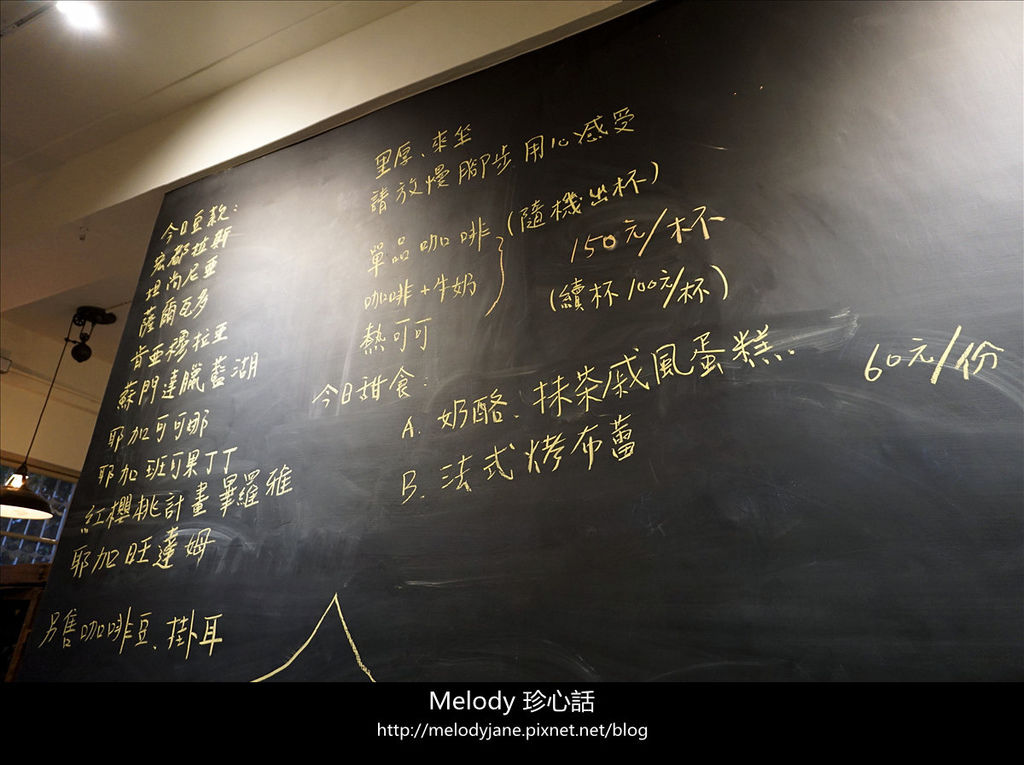 里厚、來坐
請放慢腳步 用心感受
單品咖啡
咖啡+牛奶
(隨機出杯)
150元/杯
熱可可
(續杯100元/杯)
今日甜食:
A. 奶酪、抹茶戚風蛋糕.
60元/份
B. 法式烤布蕾
今日豆款:
宏都拉斯
坦尚尼亞
薩爾瓦多
肯亞穆拉亞
蘇門達臘藍湖
耶加可可那
耶加班可果丁丁
紅櫻桃計畫畢羅雅
耶加旺達姆
另售咖啡豆、掛耳
Melody 珍心話
http://melodyjane.pixnet.net/blog